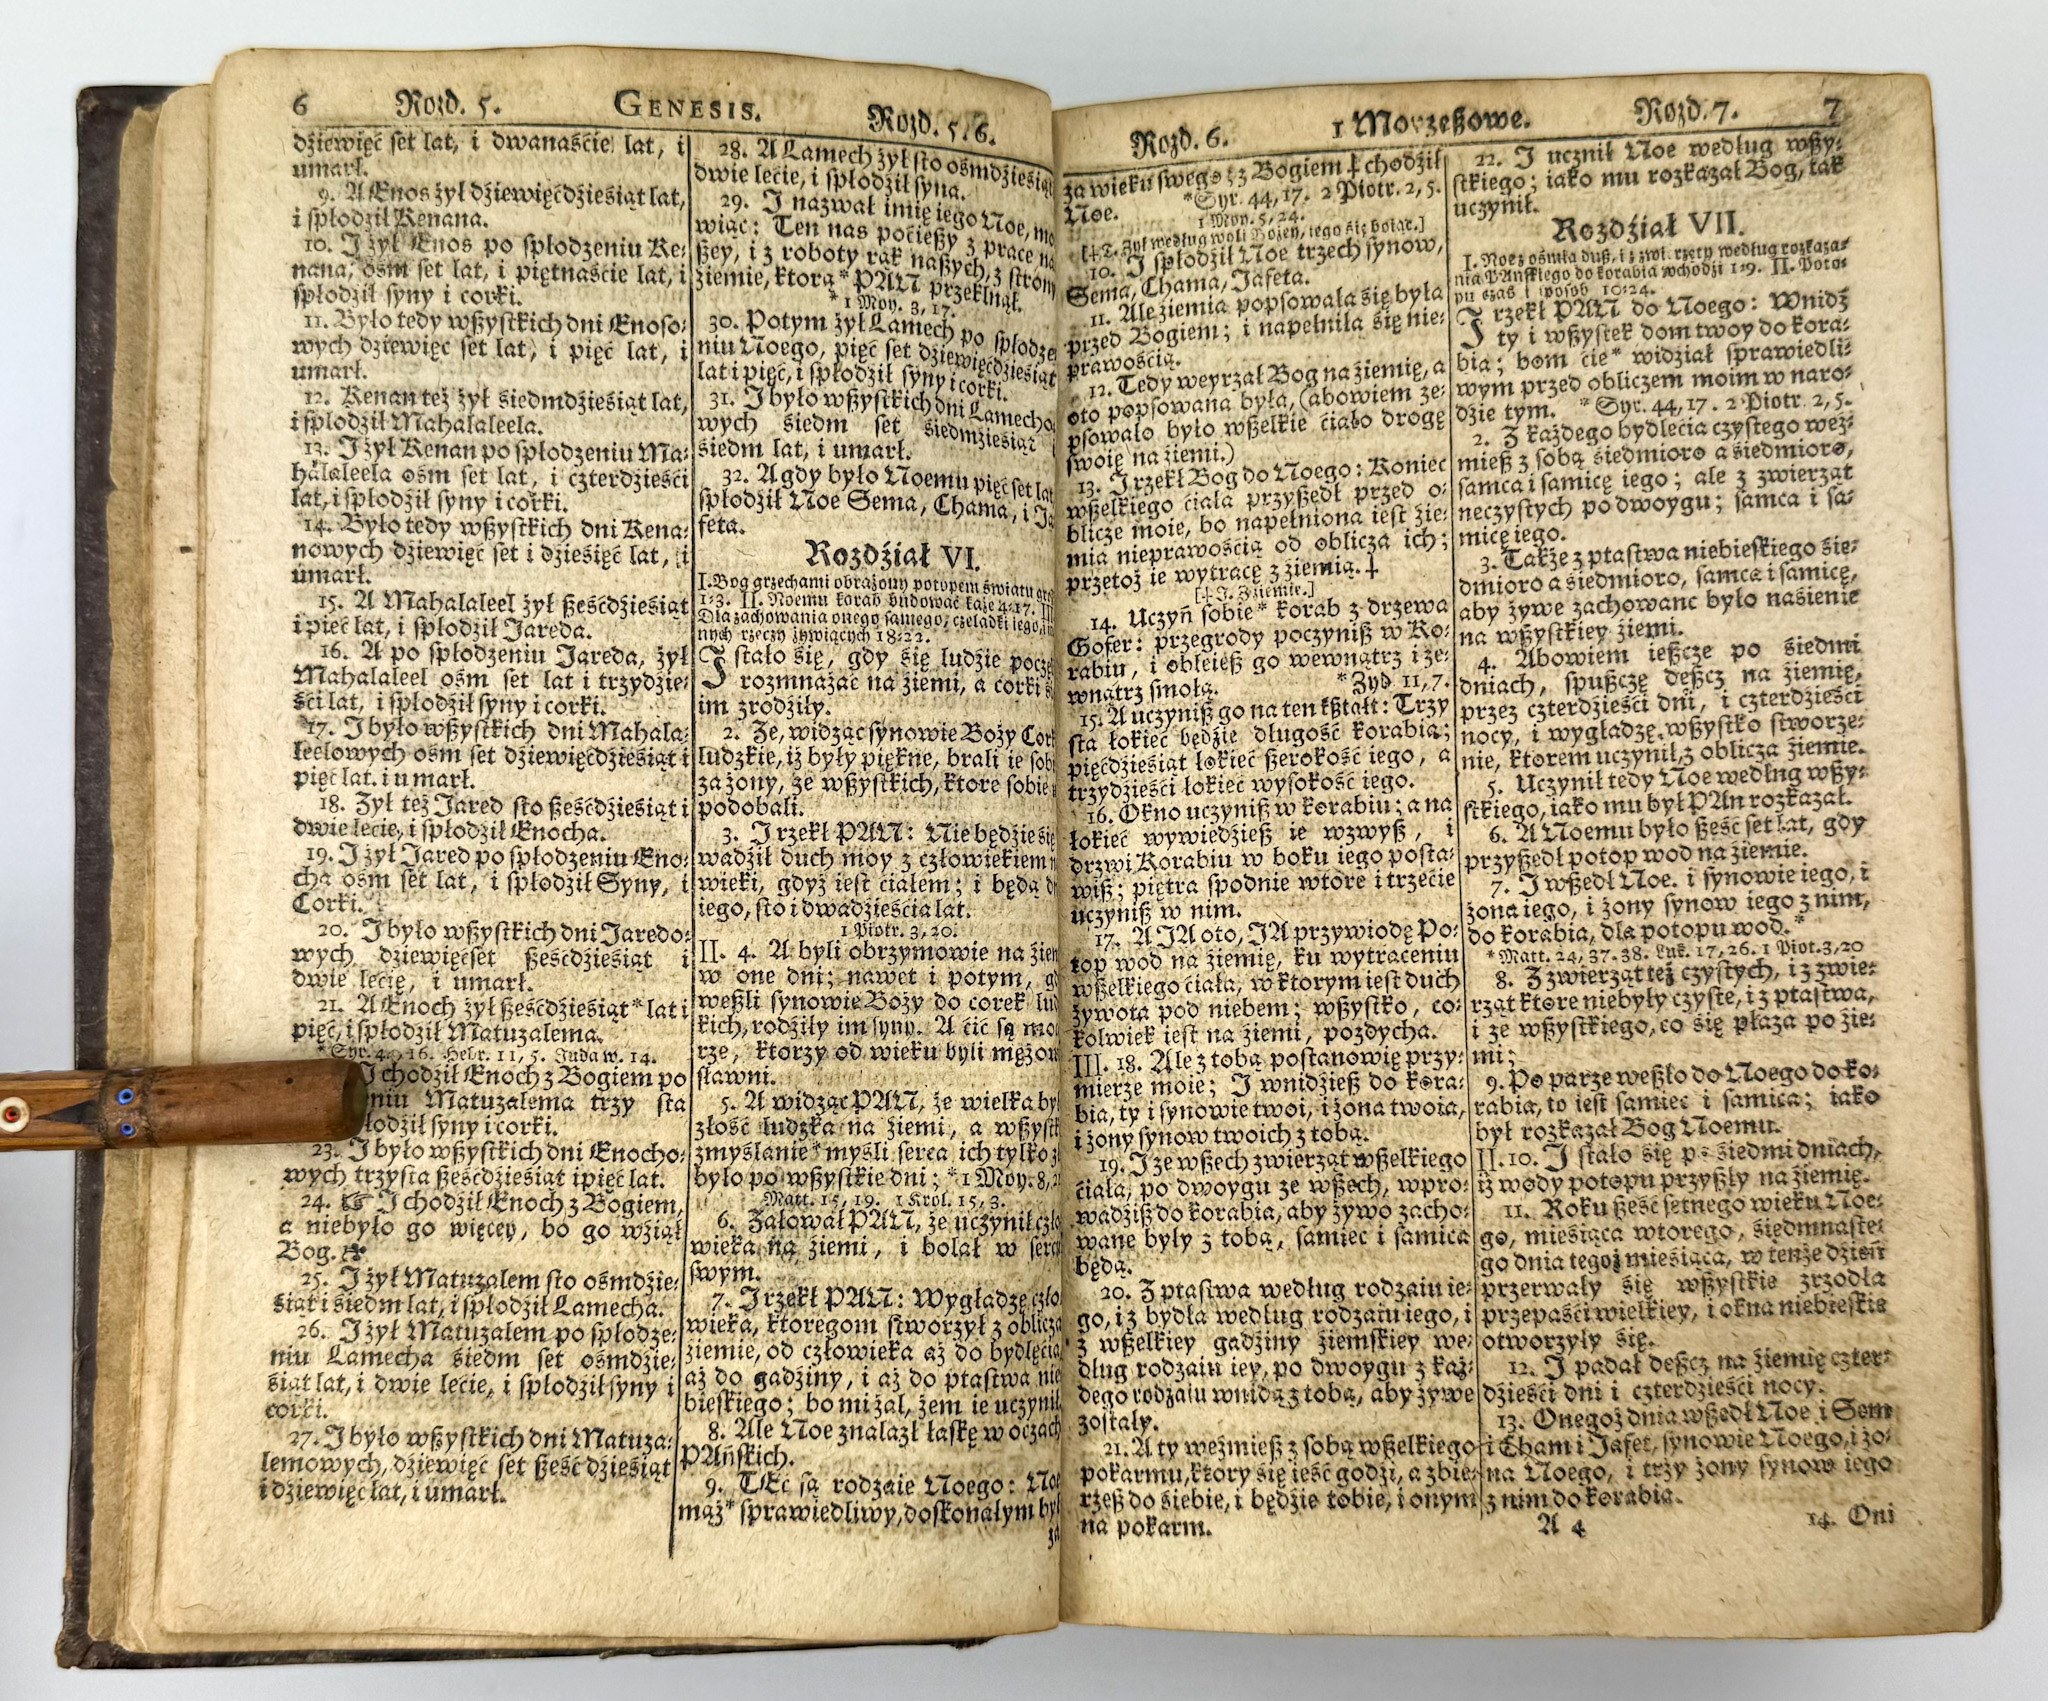 6 Rozd. 5. GENESIS. Rozd. 5. 6.
dźiewięć set lat, i dwanaśćie lat, i
umarł.
9. A Enos żył dźiewięćdźieśiąt lat,
i spłodźił Kenana.
10. I żył Enos po spłodzeniu Ke-
nana, ośm set lat, i piętnaśćie lat, i
spłodźił syny i corki.
11. Było tedy wßystkich dni Enoso-
wych dźiewięć set lat, i pięć lat, i
umarł.
12. Kenan też żył śiedmdźieśiąt lat,
i spłodźił Mahalaleela.
13. I żył Kenan po spłodzeniu Ma-
halaleela ośm set lat, i czterdźieśći
lat, i spłodźił syny i corki.
14. Było tedy wßystkich dni Kena-
nowych dźiewięć set i dźieśięć lat, i
umarł.
15. A Mahalaleel żył ßeśćdźieśiąt
i pięć lat, i spłodźił Jareda.
16. A po spłodzeniu Jareda, żył
Mahalaleel ośm set lat i trzydźie-
śći lat, i spłodźił syny i corki.
17. I było wßystkich dni Mahala-
leelowych ośm set dźiewięćdźieśiąt i
pięć lat. i umarł.
18. Zył też Jared sto ßeśćdźieśiąt i
dwie lecie, i spłodźił Enocha.
19. I żył Jared po spłodzeniu Eno-
cha ośm set lat, i spłodźił Syny, i
Corki.
20. I było wßystkich dni Jaredo-
wych dźiewięćset ßeśćdźieśiąt i
dwie lecie, i umarł.
21. A Enoch żył ßeśćdźieśiąt* lat i
pięć, i spłodźił Matuzalema.
*Syr. 44, 16. Hebr. 11, 5. Juda w. 14.
I chodźił Enoch z Bogiem po
niu Matuzalema trzy sta
łodźił syny i corki.
23. I było wßystkich dni Enocho-
wych trzysta ßeśćdźieśiąt i pięć lat.
24. ☞ I chodźił Enoch z Bogiem,
a niebyło go więcey, bo go wźiął
Bog.
25. I żył Matuzalem sto ośmdźie-
śiąt i śiedm lat, i spłodźił Lamecha.
26. I żył Matuzalem po spłodze-
niu Lamecha śiedm set ośmdźie-
śiąt lat, i dwie lecie, i spłodźił syny i
corki.
27. I było wßystkich dni Matuza-
lemowych, dźiewięć set ßeść dźieśiąt
i dźiewięć lat, i umarł.
28. A Lamech żył sto ośmdźieśiąt
dwie lecie, i spłodźił syna.
29. I nazwał imię iego Noe, mo
wiąc: Ten nas poćießy z prace na
ßey, i z roboty rąk naßych, z strony
źiemie, ktorą* PAN przeklnął.
* 1 Moy. 3, 17.
30. Potym żył Lamech po spłodze
niu Noego, pięć set dźiewięćdźieśiąt
lat i pięć, i spłodźił syny i corki.
31. I było wßystkich dni Lamecho
wych śiedm set śiedmźieśiąt i
śiedm lat, i umarł.
32. A gdy było Noemu pięć set lat
spłodźił Noe Sema, Chama, i Ja
feta.
Rozdźiał VI.
I. Bog grzechami obrażony potopem światu gro
1-3. II. Noemu korab budować każe 4-17. III
Dla zachowania onego samego, czeladki iego, in
nych rzeczy żywiących 18-22.
I stało się, gdy się ludźie poczę
rozmnażać na źiemi, a corki s
im zrodźiły.
2. Że, widząc synowie Boży Cor
ludzkie, iż były piękne, brali ie sobi
za żony, ze wßystkich, ktore sobie
podobali.
3. I rzekł PAN: Nie będźie się
wadźił duch moy z człowiekiem n
wieki, gdyż iest ćiałem; i będą d
iego, sto i dwadźieśćia lat.
1 Piotr. 3, 20.
II. 4. A byli obrzymowie na źiem
w one dni; nawet i potym, g
weßli synowie Boży do corek lud
kich, rodźiły im syny. A ćić są mo
rze, ktorzy od wieku byli mężow
sławni.
5. A widząc PAN, że wielka by
złość ludzka na źiemi, a wßyst
zmyślanie* myśli serca ich tylko z
było po wßystkie dni; * 1 Moy. 8, 2
Matt. 15, 19. 1 Krol. 15, 3.
6. Żałował PAN, że uczynił czło
wieka na źiemi, i bolał w serc
swym.
7. I rzekł PAN: Wygładzę czło
wieka, ktoregom stworzył z oblicza
źiemie, od człowieka aż do bydlęcia
aż do gadźiny, i aż do ptastwa nie
bieskiego; bo mi żal, żem ie uczynił
8. Ale Noe znalazł łaskę w oczach
PAńskich.
9. TEć są rodzaie Noego: Noe
mąż* sprawiedliwy, doskonałym był
za
Rozd. 6. 1 Moyzeßowe. Rozd. 7. 7
za wieku swego; z Bogiem ‡ chodźił
Noe. *Syr. 44, 17. 2 Piotr. 2, 5.
1 Moy. 5, 24.
[‡ J. Zył według woli Bożey, iego się boiąc.]
10. I spłodźił Noe trzech synow,
Sema, Chama, Jafeta.
11. Ale źiemia popsowała się była
przed Bogiem; i napełniła się nie-
prawośćią.
12. Tedy weyrzał Bog na źiemię, a
oto popsowana była, (abowiem ze-
psowało było wßelkie ćiało drogę
swoię na źiemi.)
13. I rzekł Bog do Noego: Koniec
wßelkiego ćiała przyßedł przed o-
blicze moie, bo napełniona iest źie-
mia nieprawośćią od oblicza ich;
przetoż ie wytracę z źiemią. ‡
[‡ J. Z źiemie.]
14. Uczyń sobie* korab z drzewa
Gofer: przegrody poczyniß w Ko-
rabiu, i obleieß go wewnątrz i ze-
wnątrz smołą. * Zyd 11, 7.
15. A uczyniß go na ten kßtałt: Trzy
sta łokieć będźie długość korabia;
pięćdźieśiąt łokieć ßerokość iego, a
trzydźieśći łokieć wysokość iego.
16. Okno uczyniß w korabiu; a na
łokieć wywiedźieß ie wzwyß, i
drzwi Korabiu w boku iego posta-
wiß; piętra spodnie wtore i trzecie
uczyniß w nim.
17. A JA oto, JA przywiodę Po-
top wod na źiemię, ku wytraceniu
wßelkiego ćiała, w ktorym iest duch
żywota pod niebem; wßystko, co-
kolwiek iest na źiemi, pozdycha.
III. 18. Ale z tobą postanowię przy-
mierze moie; I wnidźieß do kora-
bia, ty i synowie twoi, i żona twoia,
i żony synow twoich z tobą.
19. I ze wßech zwierząt wßelkiego
ćiała, po dwoygu ze wßech, wpro-
wadźiß do korabia, aby żywo zacho-
wane były z tobą, samiec i samica
będą.
20. Z ptastwa według rodzaiu ie-
go, i z bydła według rodzaiu iego, i
z wßelkiey gadźiny źiemskiey we-
dług rodzaiu iey, po dwoygu z każ-
dego rodzaiu wnidą z tobą, aby żywe
zostały.
21. A ty weźmieß z sobą wßelkiego
pokarmu, ktory się ieść godźi, a zbie-
rzeß do śiebie, i będźie tobie, i onym
na pokarm.
22. I uczynił Noe według wßy-
stkiego; iako mu rozkazał Bog, tak
uczynił.
Rozdźiał VII.
I. Noe z ośmiła duß, i z zwi. rzęty według rozkaza-
nia PAńskiego do korabia wchodźi 1-9. II. Poto-
pu czas i sposob 10-24.
I rzekł PAN do Noego: Wnidź
ty i wßystek dom twoy do kora-
bia; bom ćie* widźiał sprawiedli-
wym przed obliczem moim w naro-
dźie tym. * Syr. 44, 17. 2 Piotr. 2, 5.
2. Z każdego bydlęcia czystego weź-
mieß z sobą śiedmioro a śiedmioro,
samca i samicę iego; ale z zwierząt
neczystych po dwoygu; samca i sa-
micę iego.
3. Także z ptastwa niebieskiego śie-
dmioro a śiedmioro, samca i samicę,
aby żywe zachowane było naśienie
na wßystkiey źiemi.
4. Abowiem ießcze po śiedmi
dniach, spußczę deßcz na źiemię,
przez czterdźieśći dni, i czterdźieśći
nocy, i wygładzę wßystko stworze-
nie, ktorem uczynił, z oblicza źiemie.
5. Uczynił tedy Noe wedłng wßy-
stkiego, iako mu był PAn rozkazał.
6. A Noemu było ßeść set lat, gdy
przyßedł potop wod na źiemie.
7. I wßedł Noe. i synowie iego, i
żona iego, i żony synow iego z nim,
do korabia, dla potopu wod.*
*Matt. 24, 37. 38. Luk. 17, 26. 1 Piot. 3, 20
8. Z zwierząt też czystych, i z zwie-
rząt ktore niebyły czyste, i z ptastwa,
i ze wßystkiego, co się płaza po źie-
mi;
9. Po parze weßło do Noego do ko-
rabia, to iest samiec i samica; iako
był rozkazał Bog Noemu.
II. 10. I stało się po śiedmi dniach,
iż wody potopu przyßły na źiemię.
11. Roku ßeść setnego wieku Noe-
go, mieśiąca wtorego, śiedmnaste-
go dnia tegoż mieśiąca, w tenże dźień
przerwały się wßystkie zrzodła
przepaśći wielkiey, i okna niebieskie
otworzyły się.
12. I padał deßcz na źiemię czter-
dźieśći dni i czterdźieśći nocy.
13. Onegoż dnia wßedł Noe i Sem
i Cham i Jafet, synowie Noego, i żo-
na Noego, i trzy żony synow iego
z nim do korabia.
A 4 14. Oni